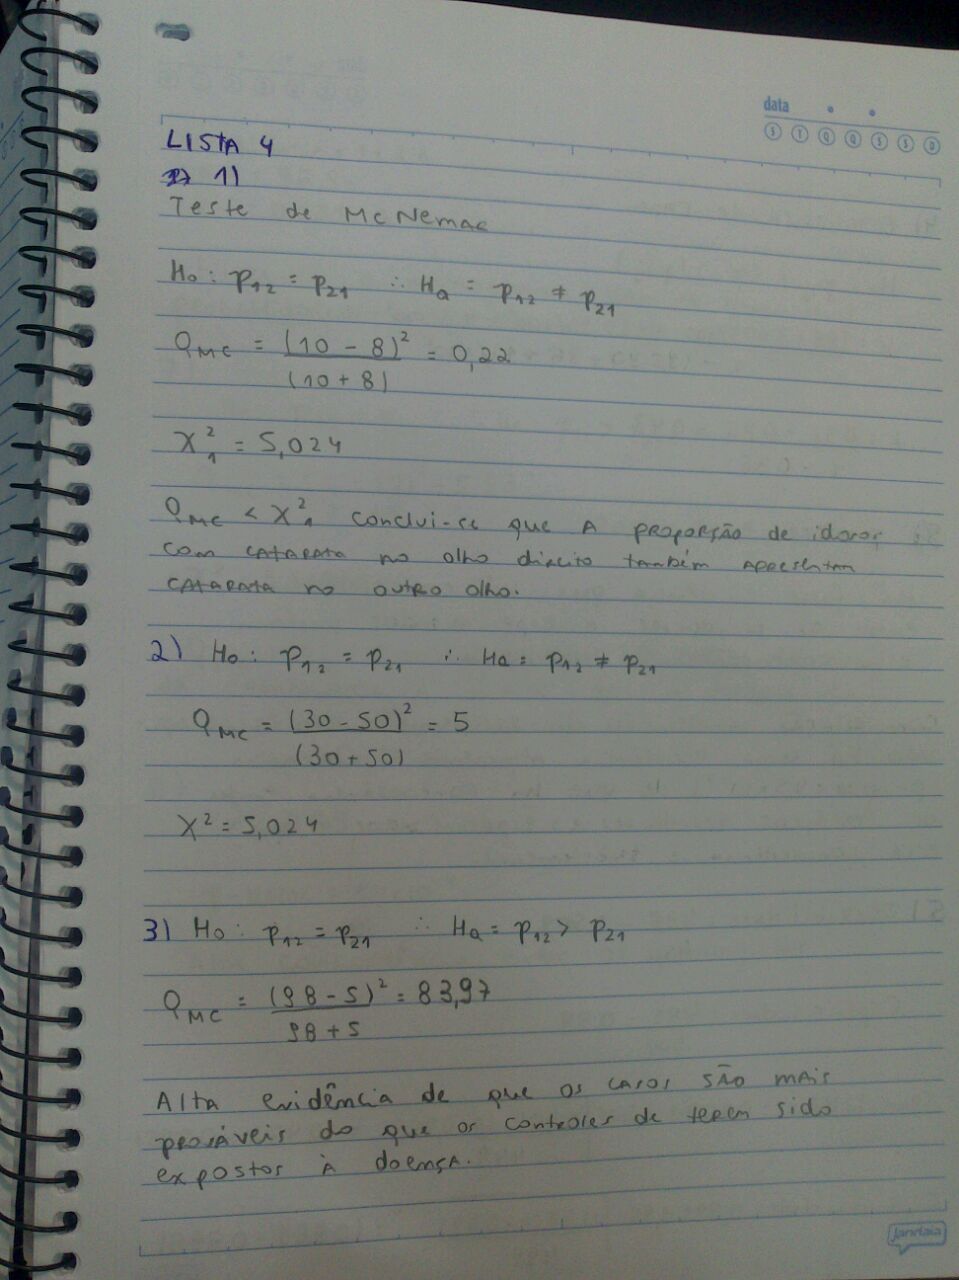 data
S T Q Q S S D
LISTA 4
1)
Teste de McNemar
H₀: p₁₂ = p₂₁ ∴ Hₐ = p₁₂ ≠ p₂₁
Q_MC = (10 - 8)² = 0,22
(10 + 8)
X²₁ = 5,024
Q_MC < X²₁ conclui-se que A proporção de idosos
com CATARATA no olho direito também apresentam
CATARATA no outro olho.
2) H₀: p₁₂ = p₂₁ ∴ Hₐ = p₁₂ ≠ p₂₁
Q_MC = (30 - 50)² = 5
(30 + 50)
X² = 5,024
3) H₀: p₁₂ = p₂₁ ∴ Hₐ = p₁₂ > p₂₁
Q_MC = (98 - 5)² = 83,97
98 + 5
Alta evidência de que os casos são mais
prováveis do que os controles de terem sido
expostos à doença.
jandaia